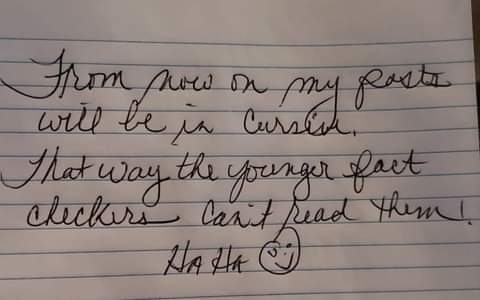 From now on my posts
will be in Cursive.
That way the younger fact
checkers can't read them!
HA HA